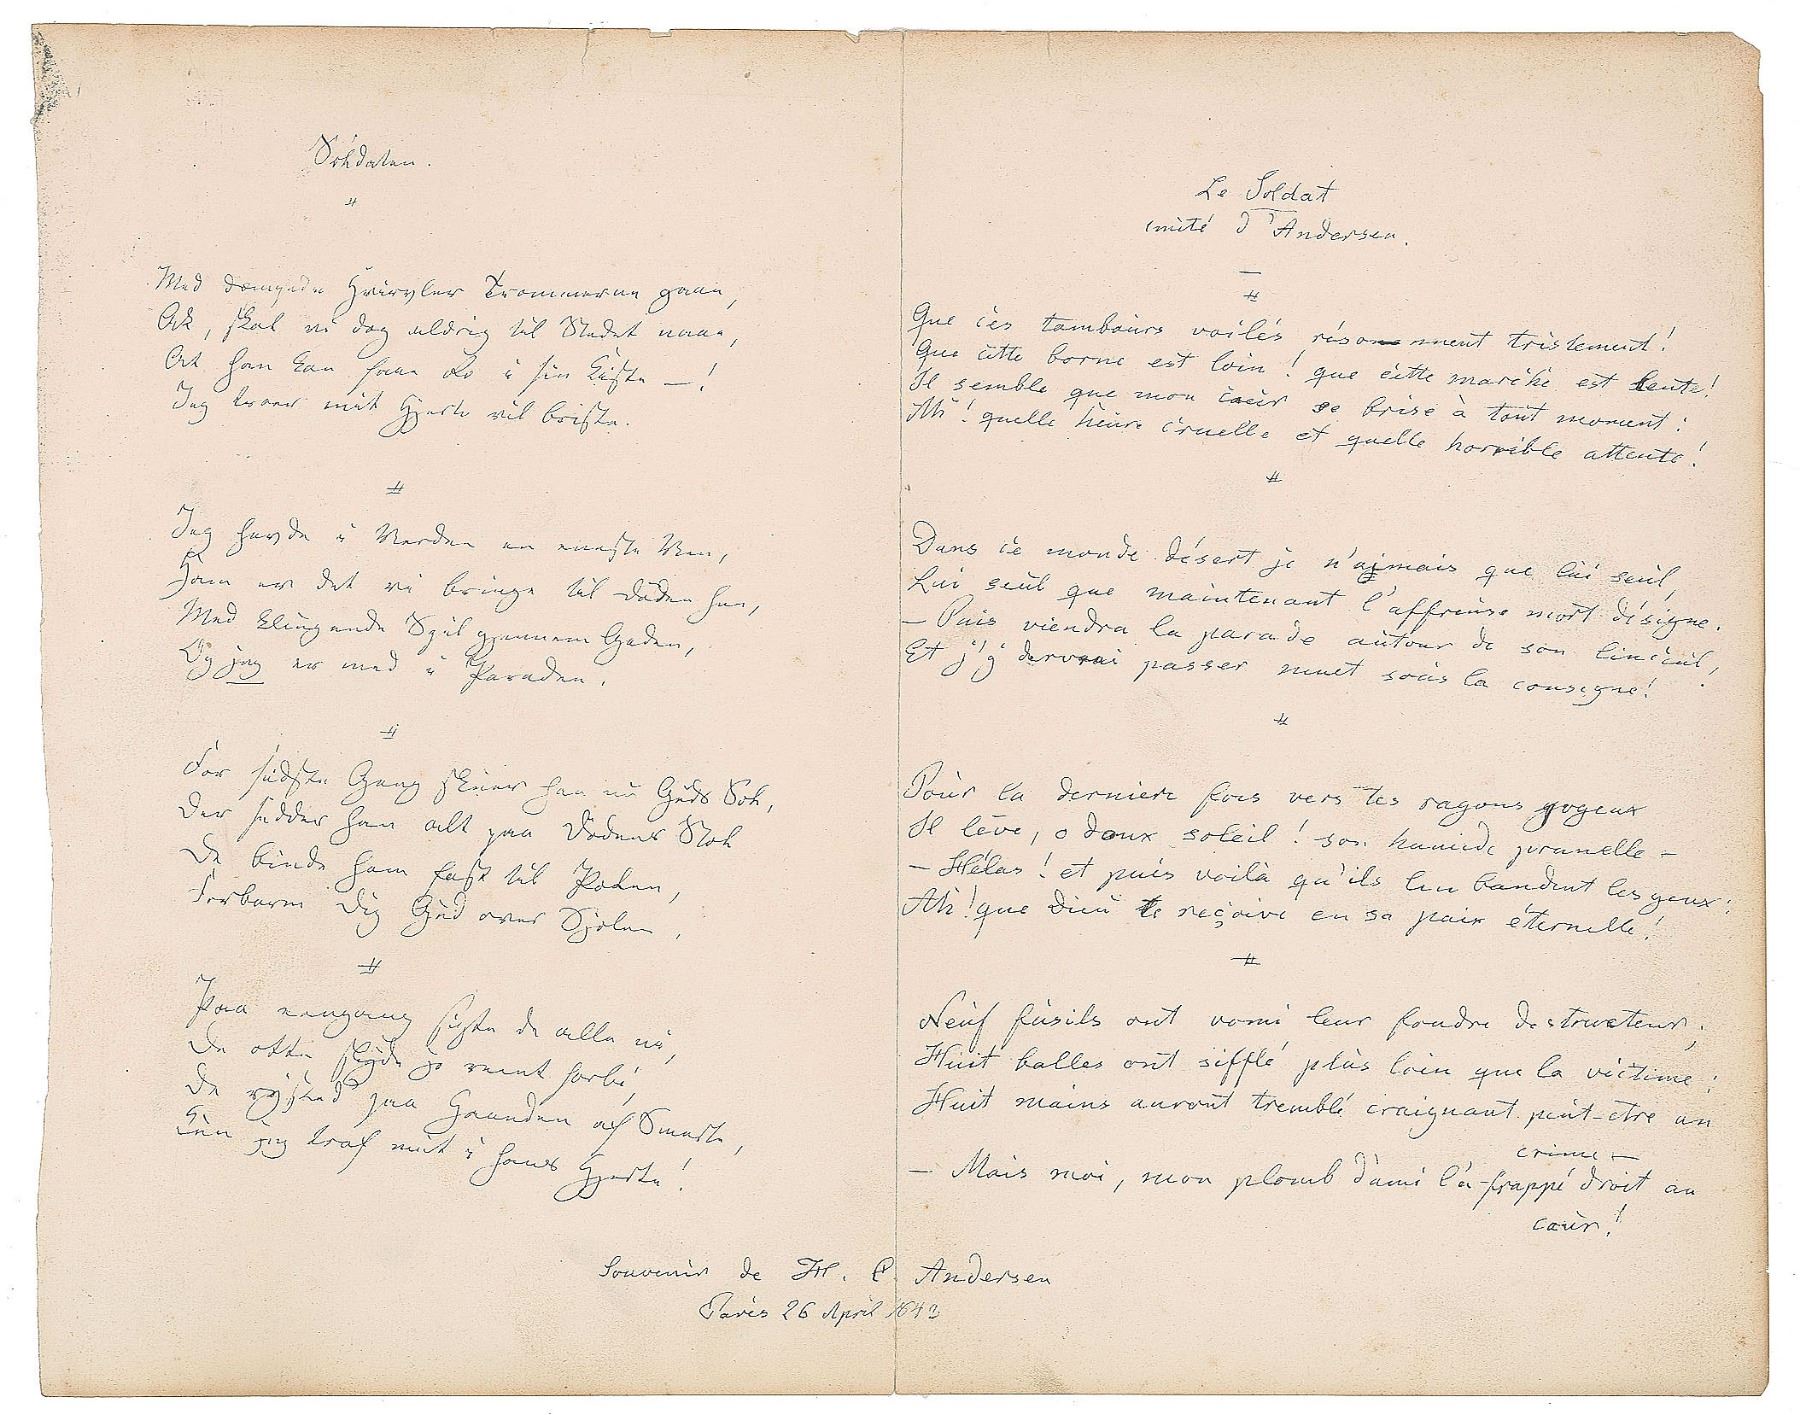 Soldaten.
Med dæmpede Hvirvler Trommerne gaae,
Ak, skal vi dog aldrig til Stedet naae,
At han kan faae Ro i sin Kiste —!
Jeg troer mit Hjerte vil briste.
Jeg havde i Verden en eneste Ven,
Ham er det vi bringe til Døden hen,
Med klingende Spil gjennem Gaden,
Og jeg er med i Paraden.
For sidste Gang skuer han nu Guds Sol,
Der sidder han alt paa Dødens Stol
De binde ham fast til Pælen,
Forbarm Dig Gud over Sjælen,
Paa eengang sigte de alle ni,
De otte skyde jo reent forbi,
De rysted paa Haanden af Smerte,
Kun jeg traf midt i hans Hjerte!
Le Soldat
imité d'Andersen.
Que ces tambours voilés résonnent tristement!
Que cette borne est loin! que cette marche est lente!
Il semble que mon cœur se brise à tout moment:
Ah! quelle heure cruelle et quelle horrible attente!
Dans ce monde désert je n'aimais que lui seul,
Lui seul que maintenant l'affreuse mort désigne.
— Puis viendra la parade autour de son linceul,
Et j'y devrai passer muet sous la consigne!
Pour la derniere fois vers tes rayons joyeux
Il lève, o doux soleil! son humide prunelle —
— Hélas! et puis voilà qu'ils lui bandent les yeux:
Ah! que Dieu le reçoive en sa paix éternelle!
Neuf fusils ont vomi leur foudre destructeur;
Huit balles ont sifflé plus loin que la victime:
Huit mains auront tremblé craignant peut-etre un
crime —
— Mais moi, mon plomb d'ami l'a frappé droit au
cœur!
Souvenir de H. C. Andersen
Paris 26 April 1843